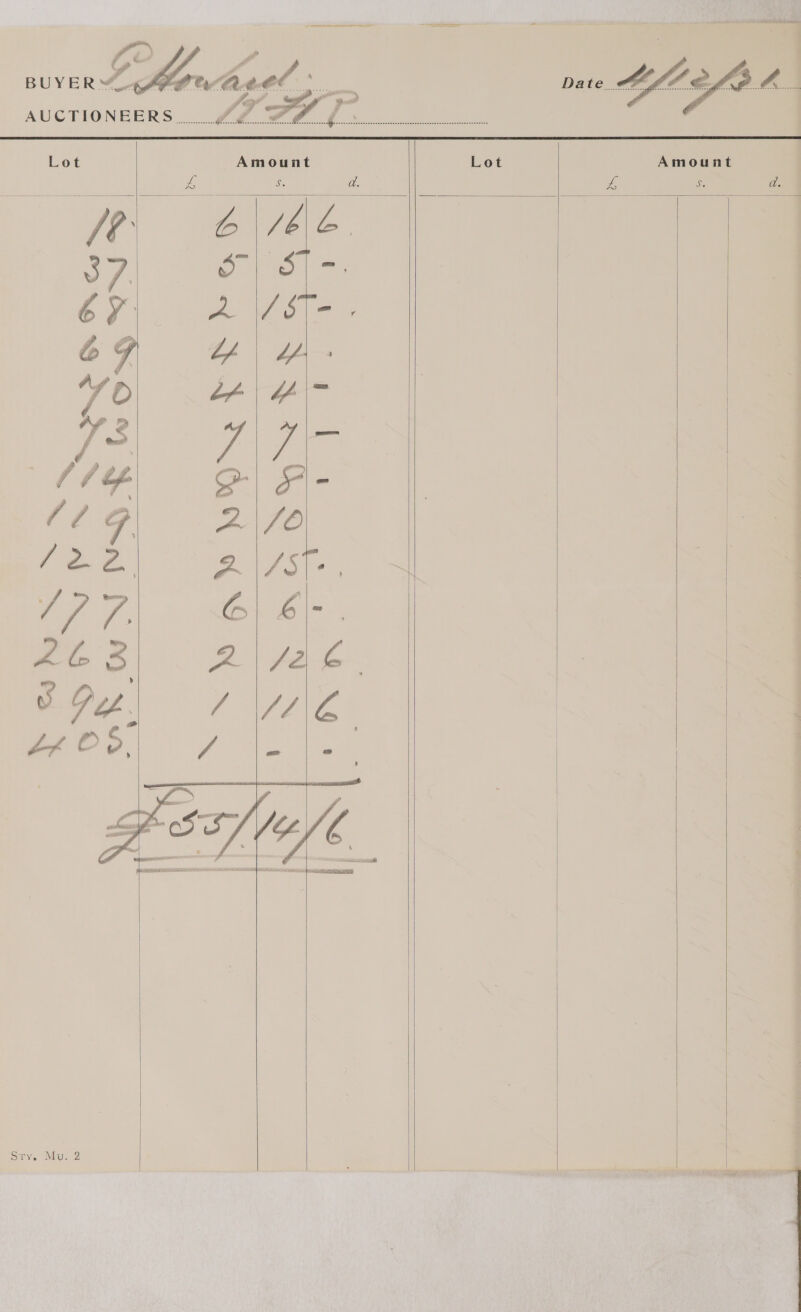 BUYER
Date
AUCTIONEERS
Lot Amount Lot Amount
£ s. d. £ s. d.
18 6 16 6
37 5 5 -
68 2 15 -
69 4 4
70 4 4 -
73 7 7 -
114 8 8 -
119 2 10
122 2 15 -
177 6 6 -
263 2 12 6
394 1 11 6
405 1 - -
£55/14/6
Sty. Mu. 2